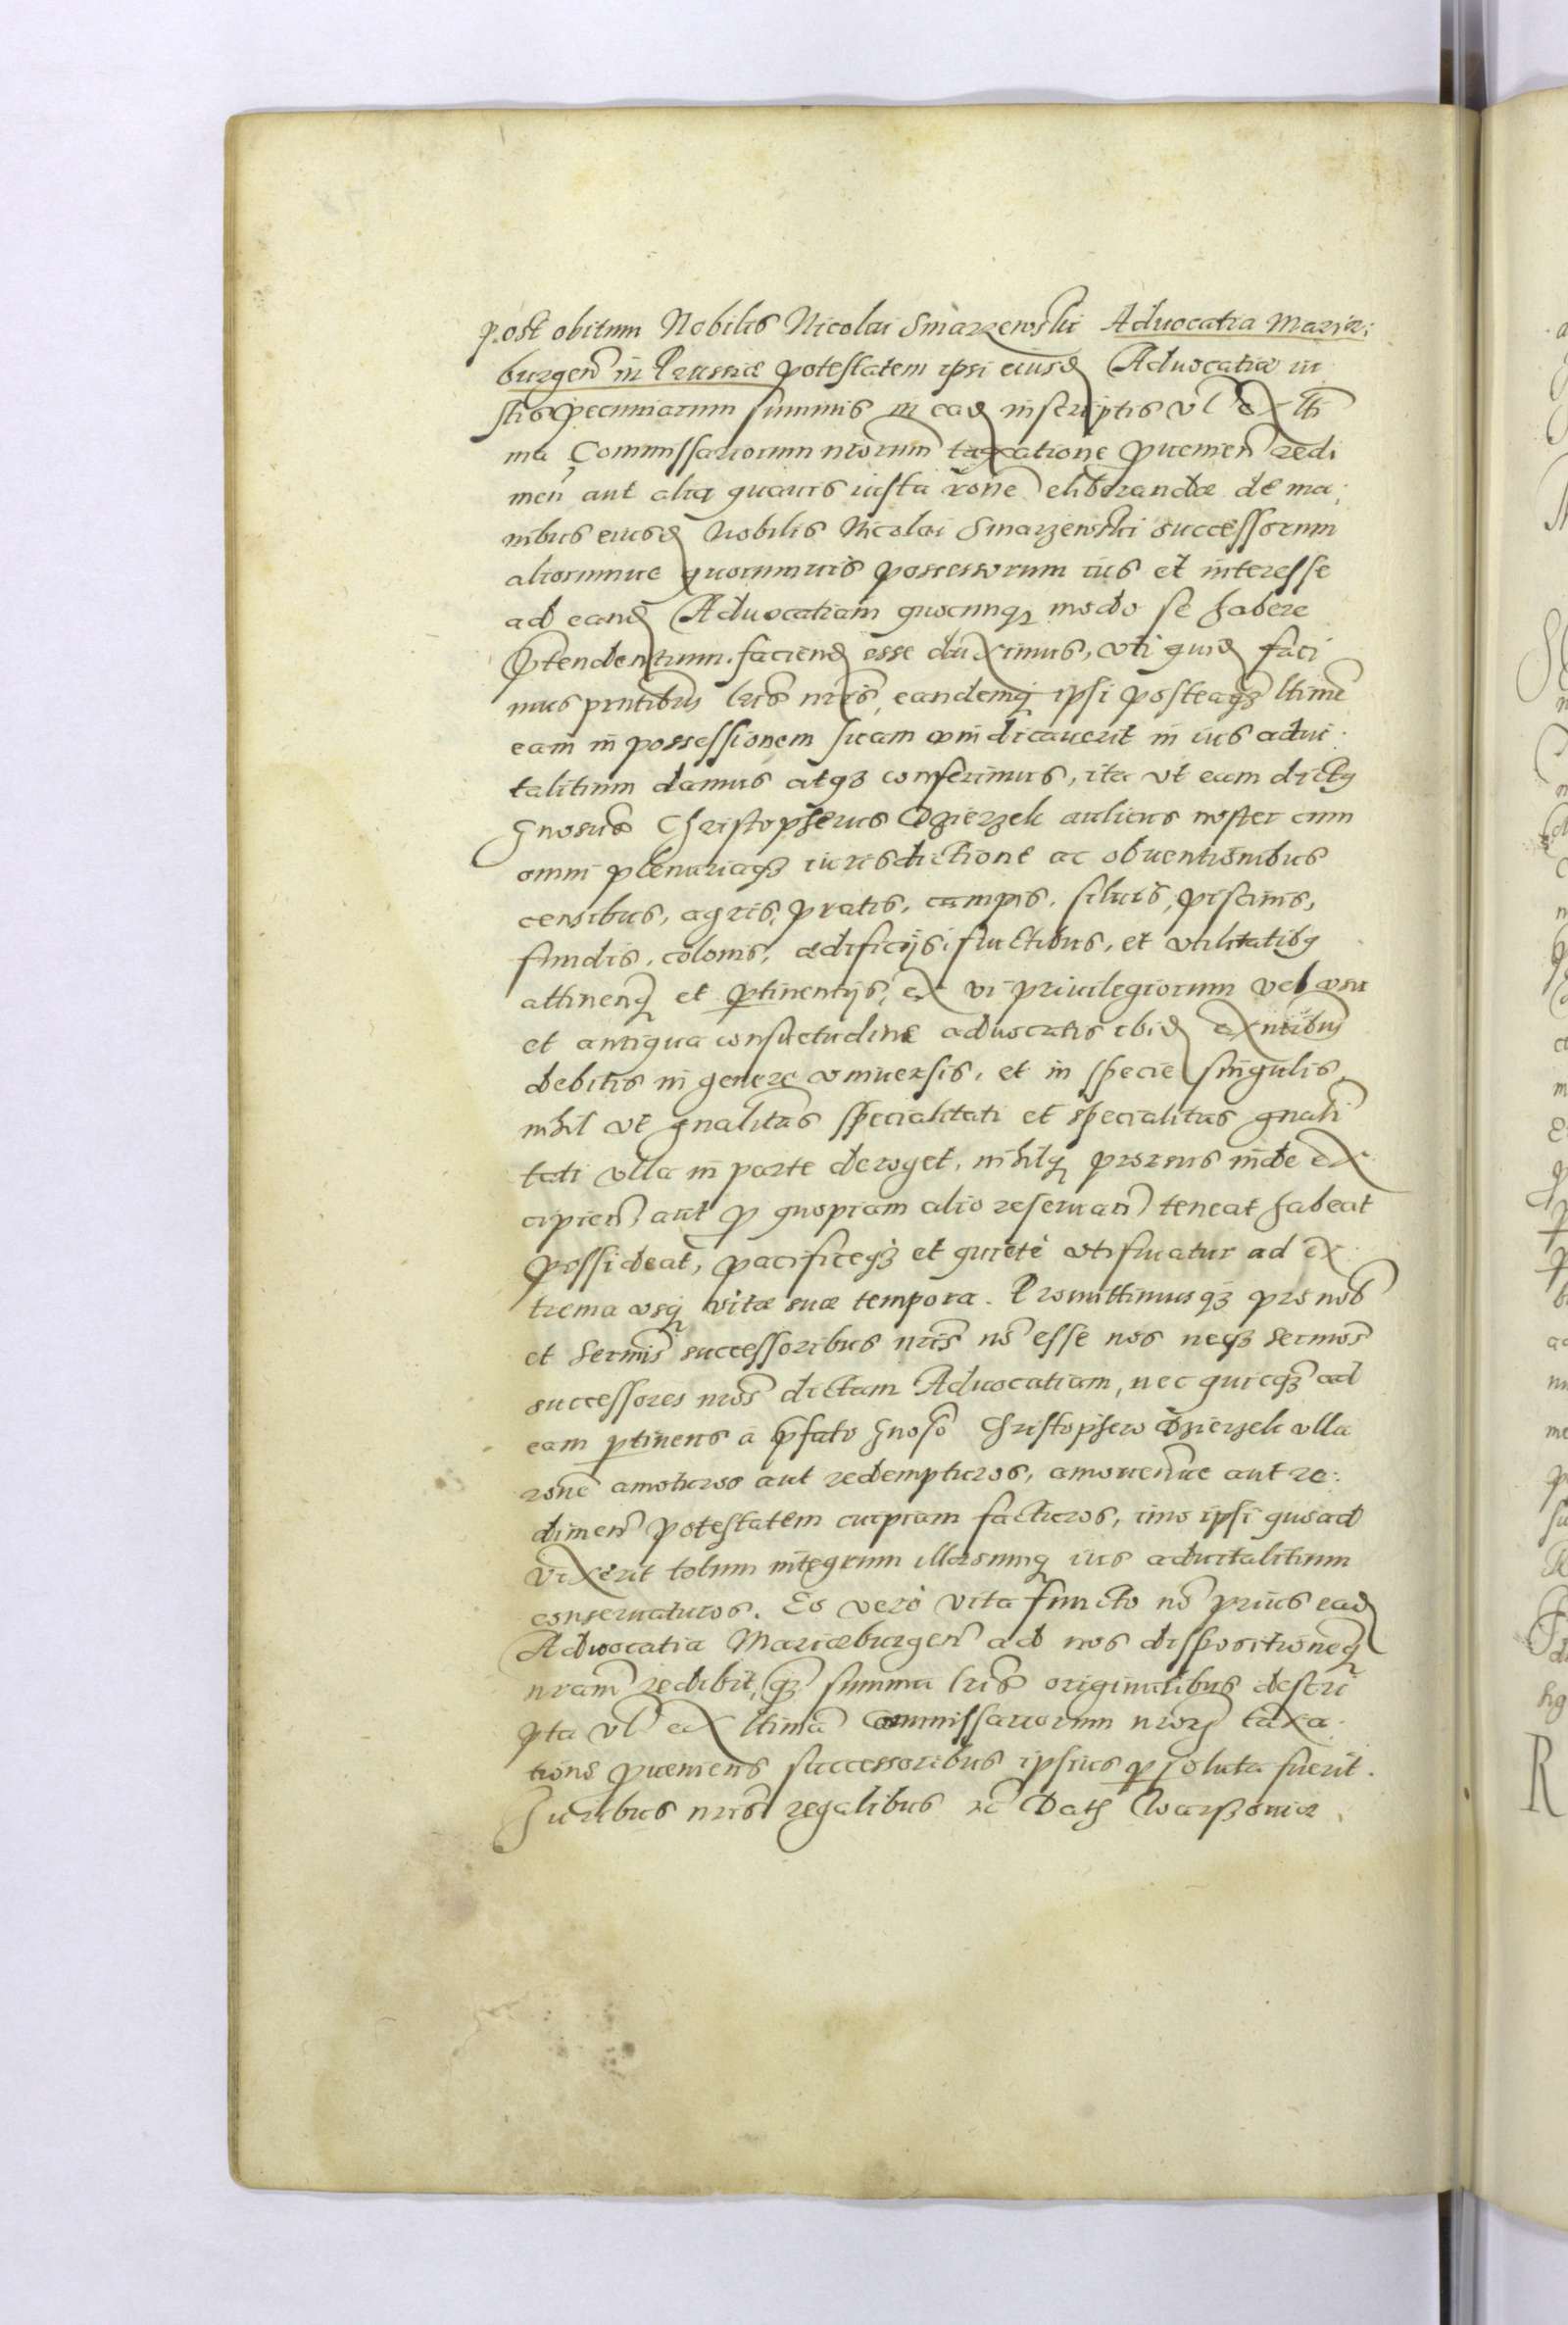 post obitum Nobilis Nicolai Smarzewski Advocatia Mariæ:
burgen in Prussia potestatem ipsi eiusd Advocatiæ iu
stis pecuniarum summis in ead inscriptis vl ex lti
ma Commissariorum nrorum taxatione puenien redi
men aut alia quavis iusta rone eliberandæ de ma:
nibus eiusd Nobilis Nicolai Smarzewski successorum
aliorumue quorumuis possessorum ius et interesse
ad eand Advocatiam quocunq modo se habere
ptendentium. faciend esse duximus, vti quid faci
mus pntibus lris nris, eandemq ipsi posteaqz ltime
eam in possessionem suam vindicauerit in ius adui:
talitium damus atqz conferimus, ita vt eam dictus
Gnosus Christopherus Dzierzek aulicus noster cum
omni plenariaqz iurisdictione ac obuentionibus
censibus, agris, pratis, campis, siluis, piscinis,
fundis, colonis, ædificijs, fructibus, et vtilitatibus
attinenq et ptinentijs, ex vi priuilegiorum vel vsu
et antiqua consuetudine advocatis ibid exntibus
debitis in genere vniuersis, et in specie singulis,
nihil vt gnalitas specialitati et specialitas gnali
tati vlla in parte deroget, nihilq prorsus inde ex
cipien, aut p quopiam alio reseruan teneat habeat
possideat, pacificeqz et quietè vtifruatur ad ex
trema vsq vitæ suæ tempora. Promittimusqz pro nob
et sermis successoribus nris no esse nos neqz sermos
successores nros dictam Advocatiam, nec quicqz ad
eam ptinens a pfato Gnoso Christophero Dzierzek vlla
rone amoturos aut redempturos, amouenue aut re:
dimen potestatem cuipiam facturos, imo ipsi quoad
vixerit totum integrum illæsumq ius aduitalitium
conseruaturos. Eo verò vita functo no prius ead
Advocatia Mariæburgen ad nos dispositionemq
nram redibit, qz summa lris originalibus descri
pta vl ex ltima Commissariorum nrorz taxa:
tione pueniens successoribus ipsius psoluta fuerit.
Juribus nris regalibus rc Datz Warssouiæ